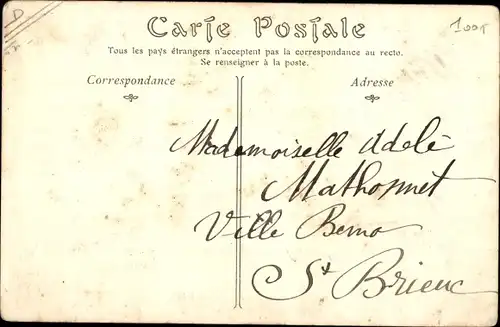 Carte Postale
Tous les pays étrangers n'acceptent pas la correspondance au recto.
Se renseigner à la poste.
Correspondance
Adresse
Mademoiselle Adele
Mathonnet
Ville Berno
St Brieuc